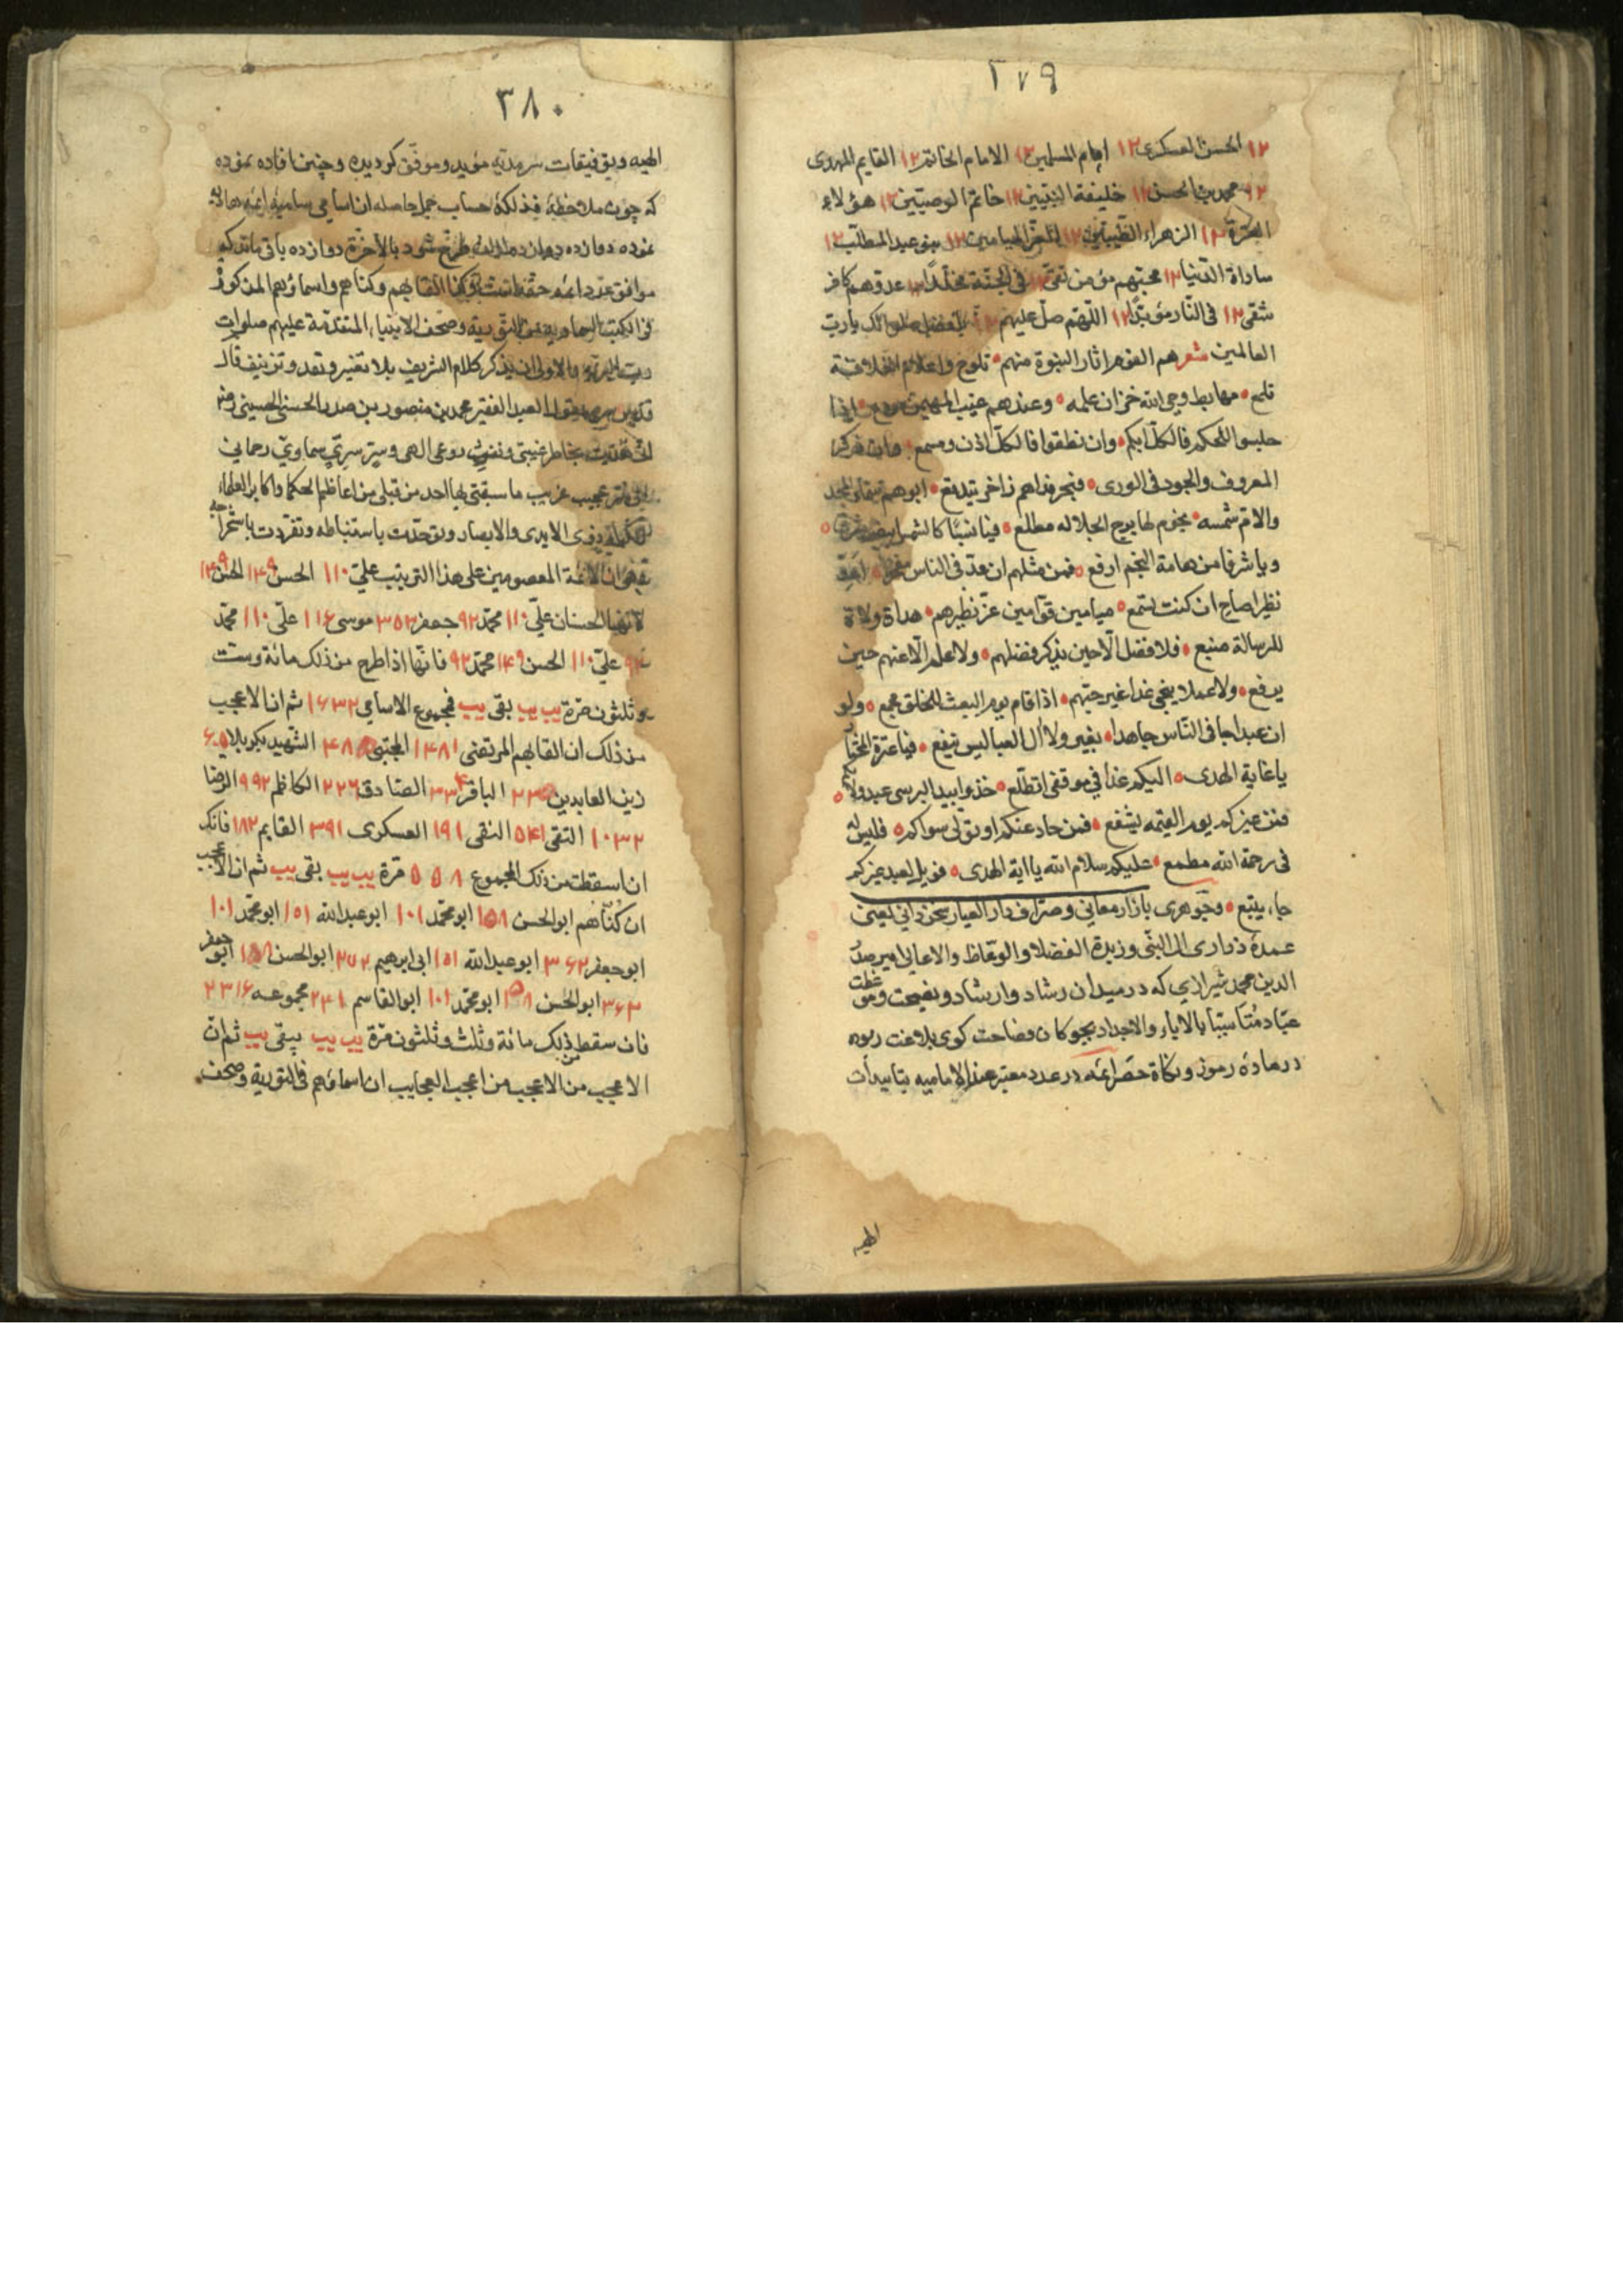 ٢٧٩
١٢ الحسن العسكرى ١٢ امام المسلمين ١٢ الامام الخاتم ١٢ القايم المهدى
١٢ محمد بن الحسن ١٢ خليفة النبيين ١٢ خاتم الوصيين ١٢ هؤلاء
العترة ١٢ الزهراء الطيبين ١٢ الميامين ١٢ بنى عبد المطلب ١٢
سادات الدنيا ١٢ محبهم مؤمن تقى ١٢ فى الجنة مخلدا ١٢ عدوهم كافر
شقى ١٢ فى النار مؤبدا ١٢ اللهم صل عليهم يا رب
العالمين شعر هم القوم اثار النبوة منهم • تلوح واعلام الخلافة
تلمع • مهابط وحى الله خزان علمه • وعندهم غيب المهيمن مودع • اذا
جلسوا للحكم فالكل ابكم • وان نطقوا فالكل اذن ومسمع •
المعروف والجود فى الورى • فبحر نداهم زاخر يتدفع • ابوهم سماء المجد
والام شمسه • نجوم لها برج الجلاله مطلع • فيا نسبا كالشمس ابيض
ويا شرفا من هامة النجم ارفع • فمن مثلهم ان عد فى الناس مفخر •
نظيرا صاح ان كنت تسمع • ميامين قوامين عز نظيرهم • هداة ولاة
للرسالة منبع • فلا فضل الا حين يذكر فضلهم • ولا علم الا عنهم حين
يرفع • ولا عملا ينجى غدا غير حبهم • اذا قام يوم البعث للخلق مجمع • ولو
ان عبدا جا فى الناس جاهدا • بغير ولا ال العبا ليس ينفع • فيا عترة المختار
يا غاية الهدى • اليكم غدا فى موقفى اتطلع • خذوا بيد البرسى عبد ولائكم •
فمن غيركم يوم القيمه يشفع • فمن حاد عنكم او تولى سواكم • فليس له
فى رحمة الله مطمع • عليكم سلام الله يا اية الهدى • فويل لعبد غيركم
جاء يتبع • وجوهرى بازار معانى وصراف دار العيار سخن دانى يعنى
عمدة ذرارى النبى وزبدة الفضلا والوعاظ والاعالى امير صدر
الدين محمد شيرازي كه در ميدان رشاد وارشاد ونصيحت وموعظت
عباد متأسيا بالاباء والاجداد بچوكان فصاحت كوى بلاغت ربوده
در ماده رموز ونكاة حصر ائمه در عدد معتبر عند الاماميه بتاييدات
الهيه
٣٨٠
الهيه وبتوفيقات سرمديه مؤيد وموفق كرديده وچنين افاده نموده
كه چون ملاحظة فذلكة حساب جمل حاصله از اسامى ساميه ائمه
نموده دوازده دوازده طرح شود بالآخرة دوازده باقى ماند كه
موافق عدد ائمه حقه است القابهم وكناهم واسماؤهم المذكورة
فى الكتب السماويه من التورية وصحف الانبياء المتقدمة عليهم صلوات
رب البريه والاولى ان يذكر كلام الشريف بلا تغيير ونقد وتزييف قال
قدس سره يقول العبد الفقير محمد بن منصور بن صدر الحسنى الحسينى
غيبى روعى الهى وسر سرى سماوي رحمانى
عجيب غريب ما سبقنى بها احد من قبلى من اعاظم الحكما واكابر العلماء
ذوى الايدى والابصار وتوحدت باستنباطه وتفردت باستخراجه
الائمة المعصومين على هذا الترتيب على ١١٠ الحسن ١٤٩ الحسن ١٤٩
لانهما الحسنان على ١١٠ محمد ٩٢ جعفر ٣٥٣ موسى ١١٦ على ١١٠ محمد
٩٢ على ١١٠ الحسن ١٤٩ محمد ٩٢ فانها اذا طرح من ذلك مائة وست
وثلثون مرة يب يب بقى يب فمجموع الاسامى ١٦٣٢ ثم ان الاعجب
من ذلك ان القابهم المرتضى ١٤٨١ المجتبى ٤٨٥ الشهيد بكربلا
زين العابدين الباقر ٣٣٤ الصادق ٢٢٦ الكاظم ٩٩٢ الرضا
١٠٣٢ التقى ٥٤١ النقى ١٩١ العسكرى ٣٩١ القايم ١٨٢ فانك
ان اسقطت من ذلك المجموع ٥٥٨ مرة يب يب بقى يب ثم ان الاعجب
ان كناهم ابو الحسن ١٥٨ ابو محمد ١٠١ ابو عبد الله ١٥١ ابو محمد ١٠١
ابو جعفر ٣٦٢ ابو عبد الله ١٥١ ابى ابرهيم ٢٧٢ ابو الحسن ١٥٨ ابو جعفر
٣٦٢ ابو الحسن ١٥٨ ابو محمد ١٠١ ابو القاسم ٢٤١ مجموعه ٢٣١٦
فان سقط من ذلك مائة وثلث وثلثون مرة يب يب يبقى يب ثم ان
الاعجب من الاعجب من اعجب العجايب ان اسماؤهم فى التورية وصحف